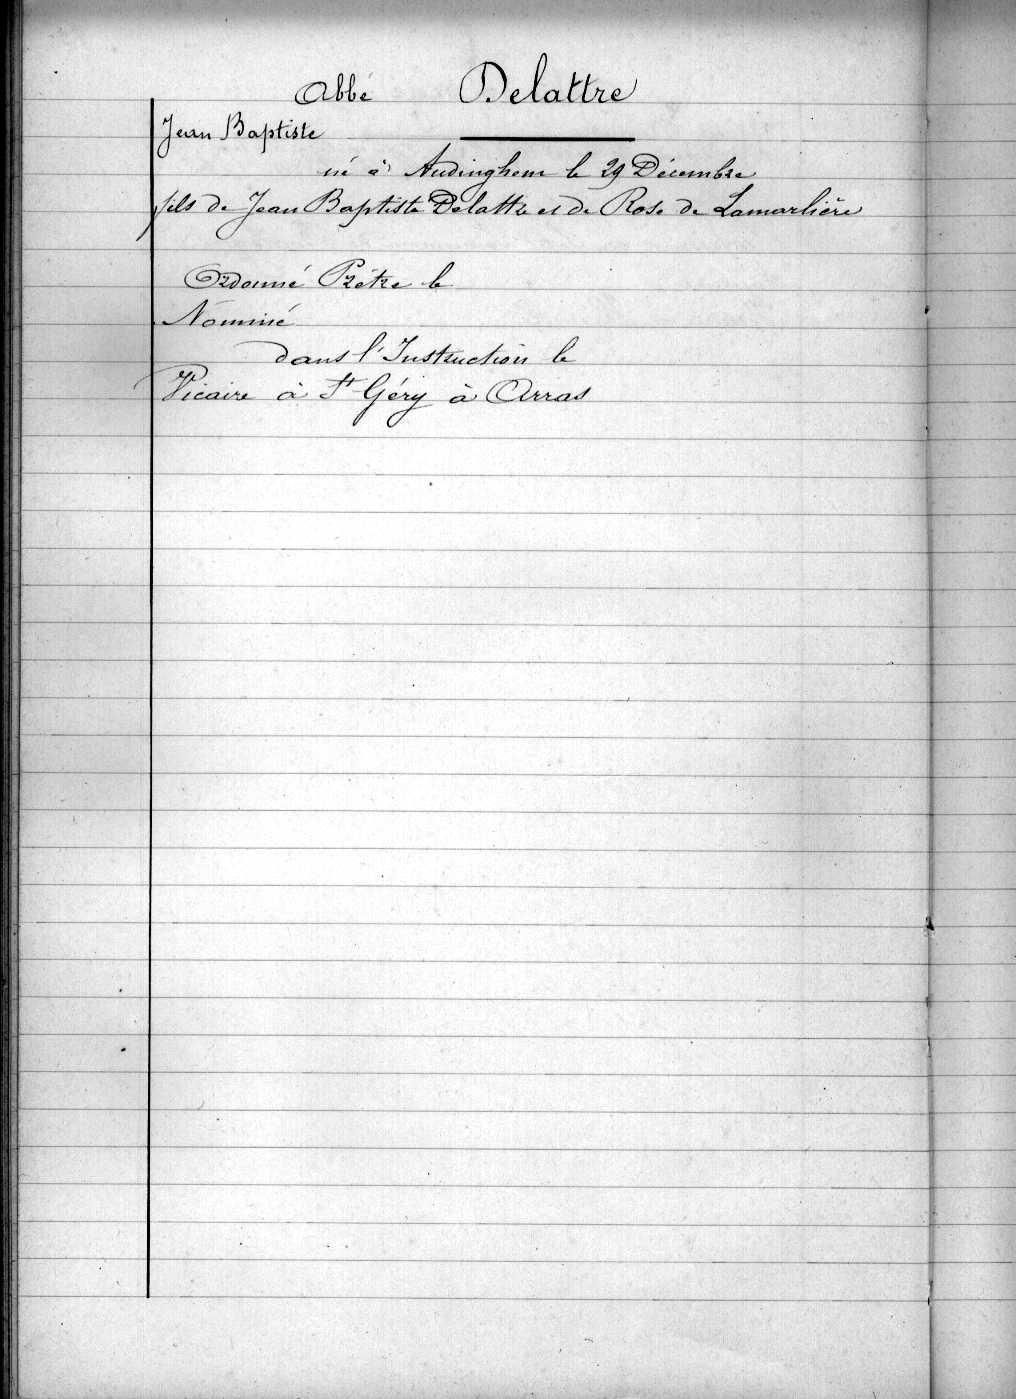 Abbé Delattre
Jean Baptiste
né à Audinghem le 29 Décembre
fils de Jean Baptiste Delattre et de Rose de Lamarlière
Ordonné Prêtre le
Nommé
dans l'Instruction le
Vicaire à St Géry à Arras